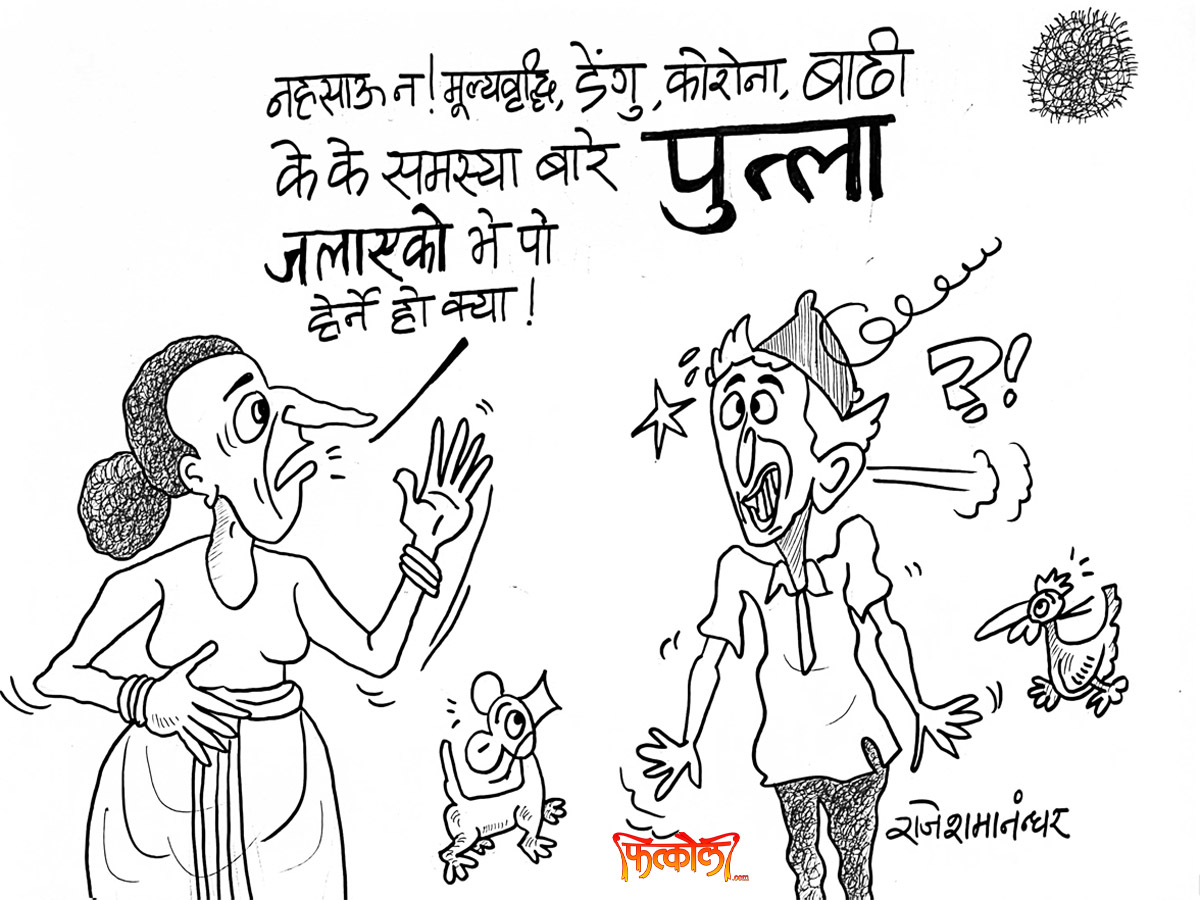 नहसाऊ न! मूल्यवृद्धि, डेंगु, कोरोना, बाढी
के के समस्या बारे पुत्ला
जलाएको भे पो
हेर्ने हो क्या!
?!
राजेश मानन्धर
फत्कौला.com